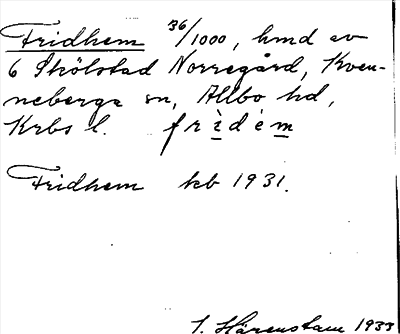 Fridhem 36/1000, hmd av
6 Skölstad Norregård, Kven-
neberga sn, Allbo hd,
Krbs l. frìdém
Fridhem kb 1931.
1933